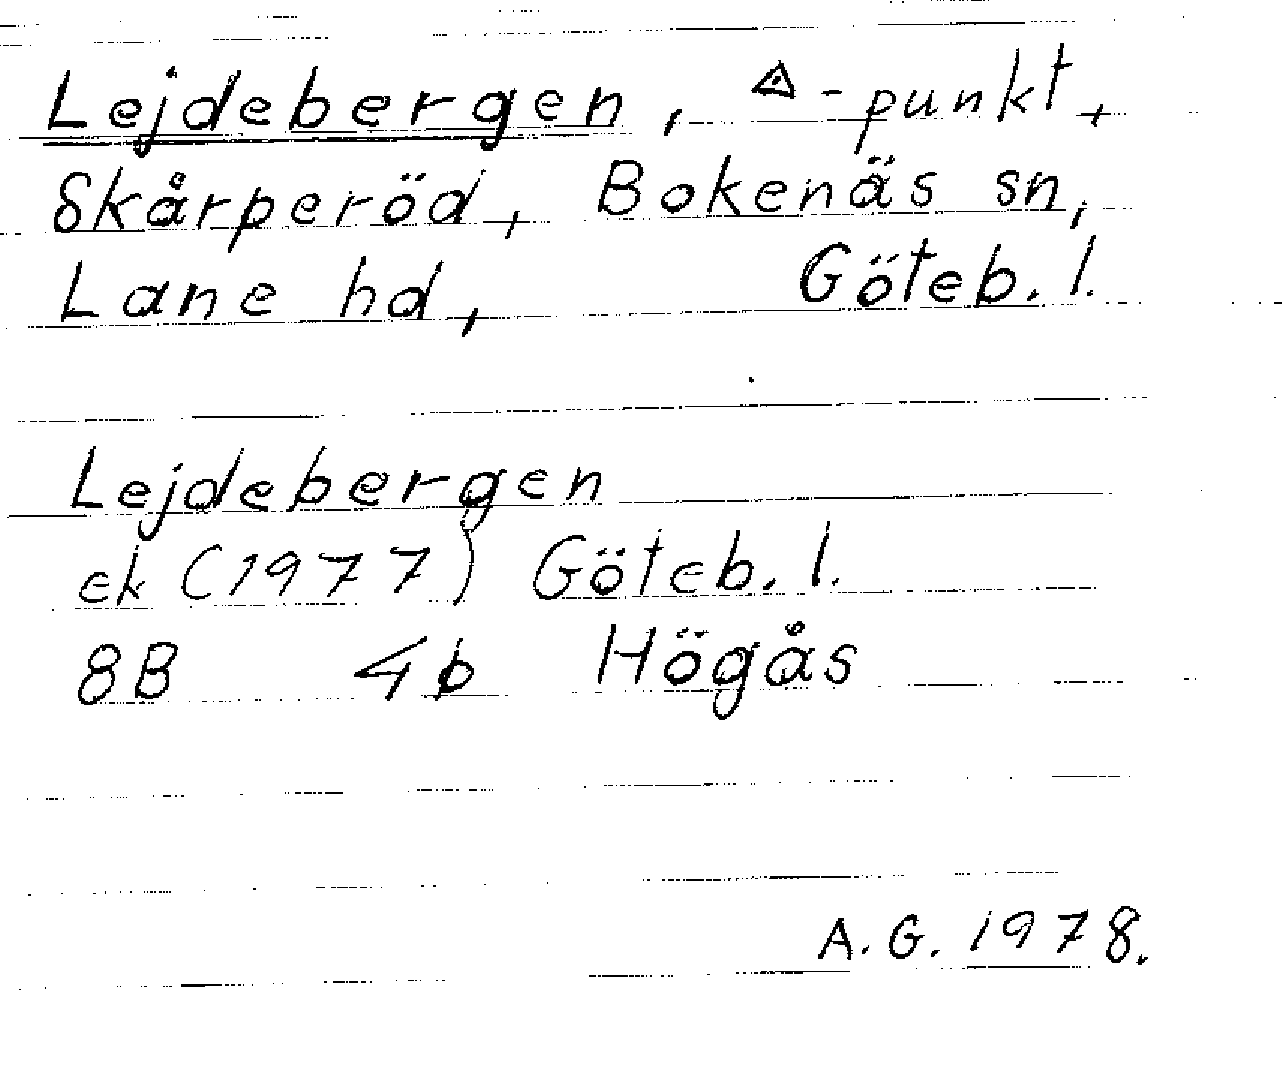 Lejdebergen, △-punkt,
Skårperöd, Bokenäs sn,
Lane hd, Göteb. l.
Lejdebergen
ek (1977) Göteb. l.
8B 4b Högås
A. G. 1978.